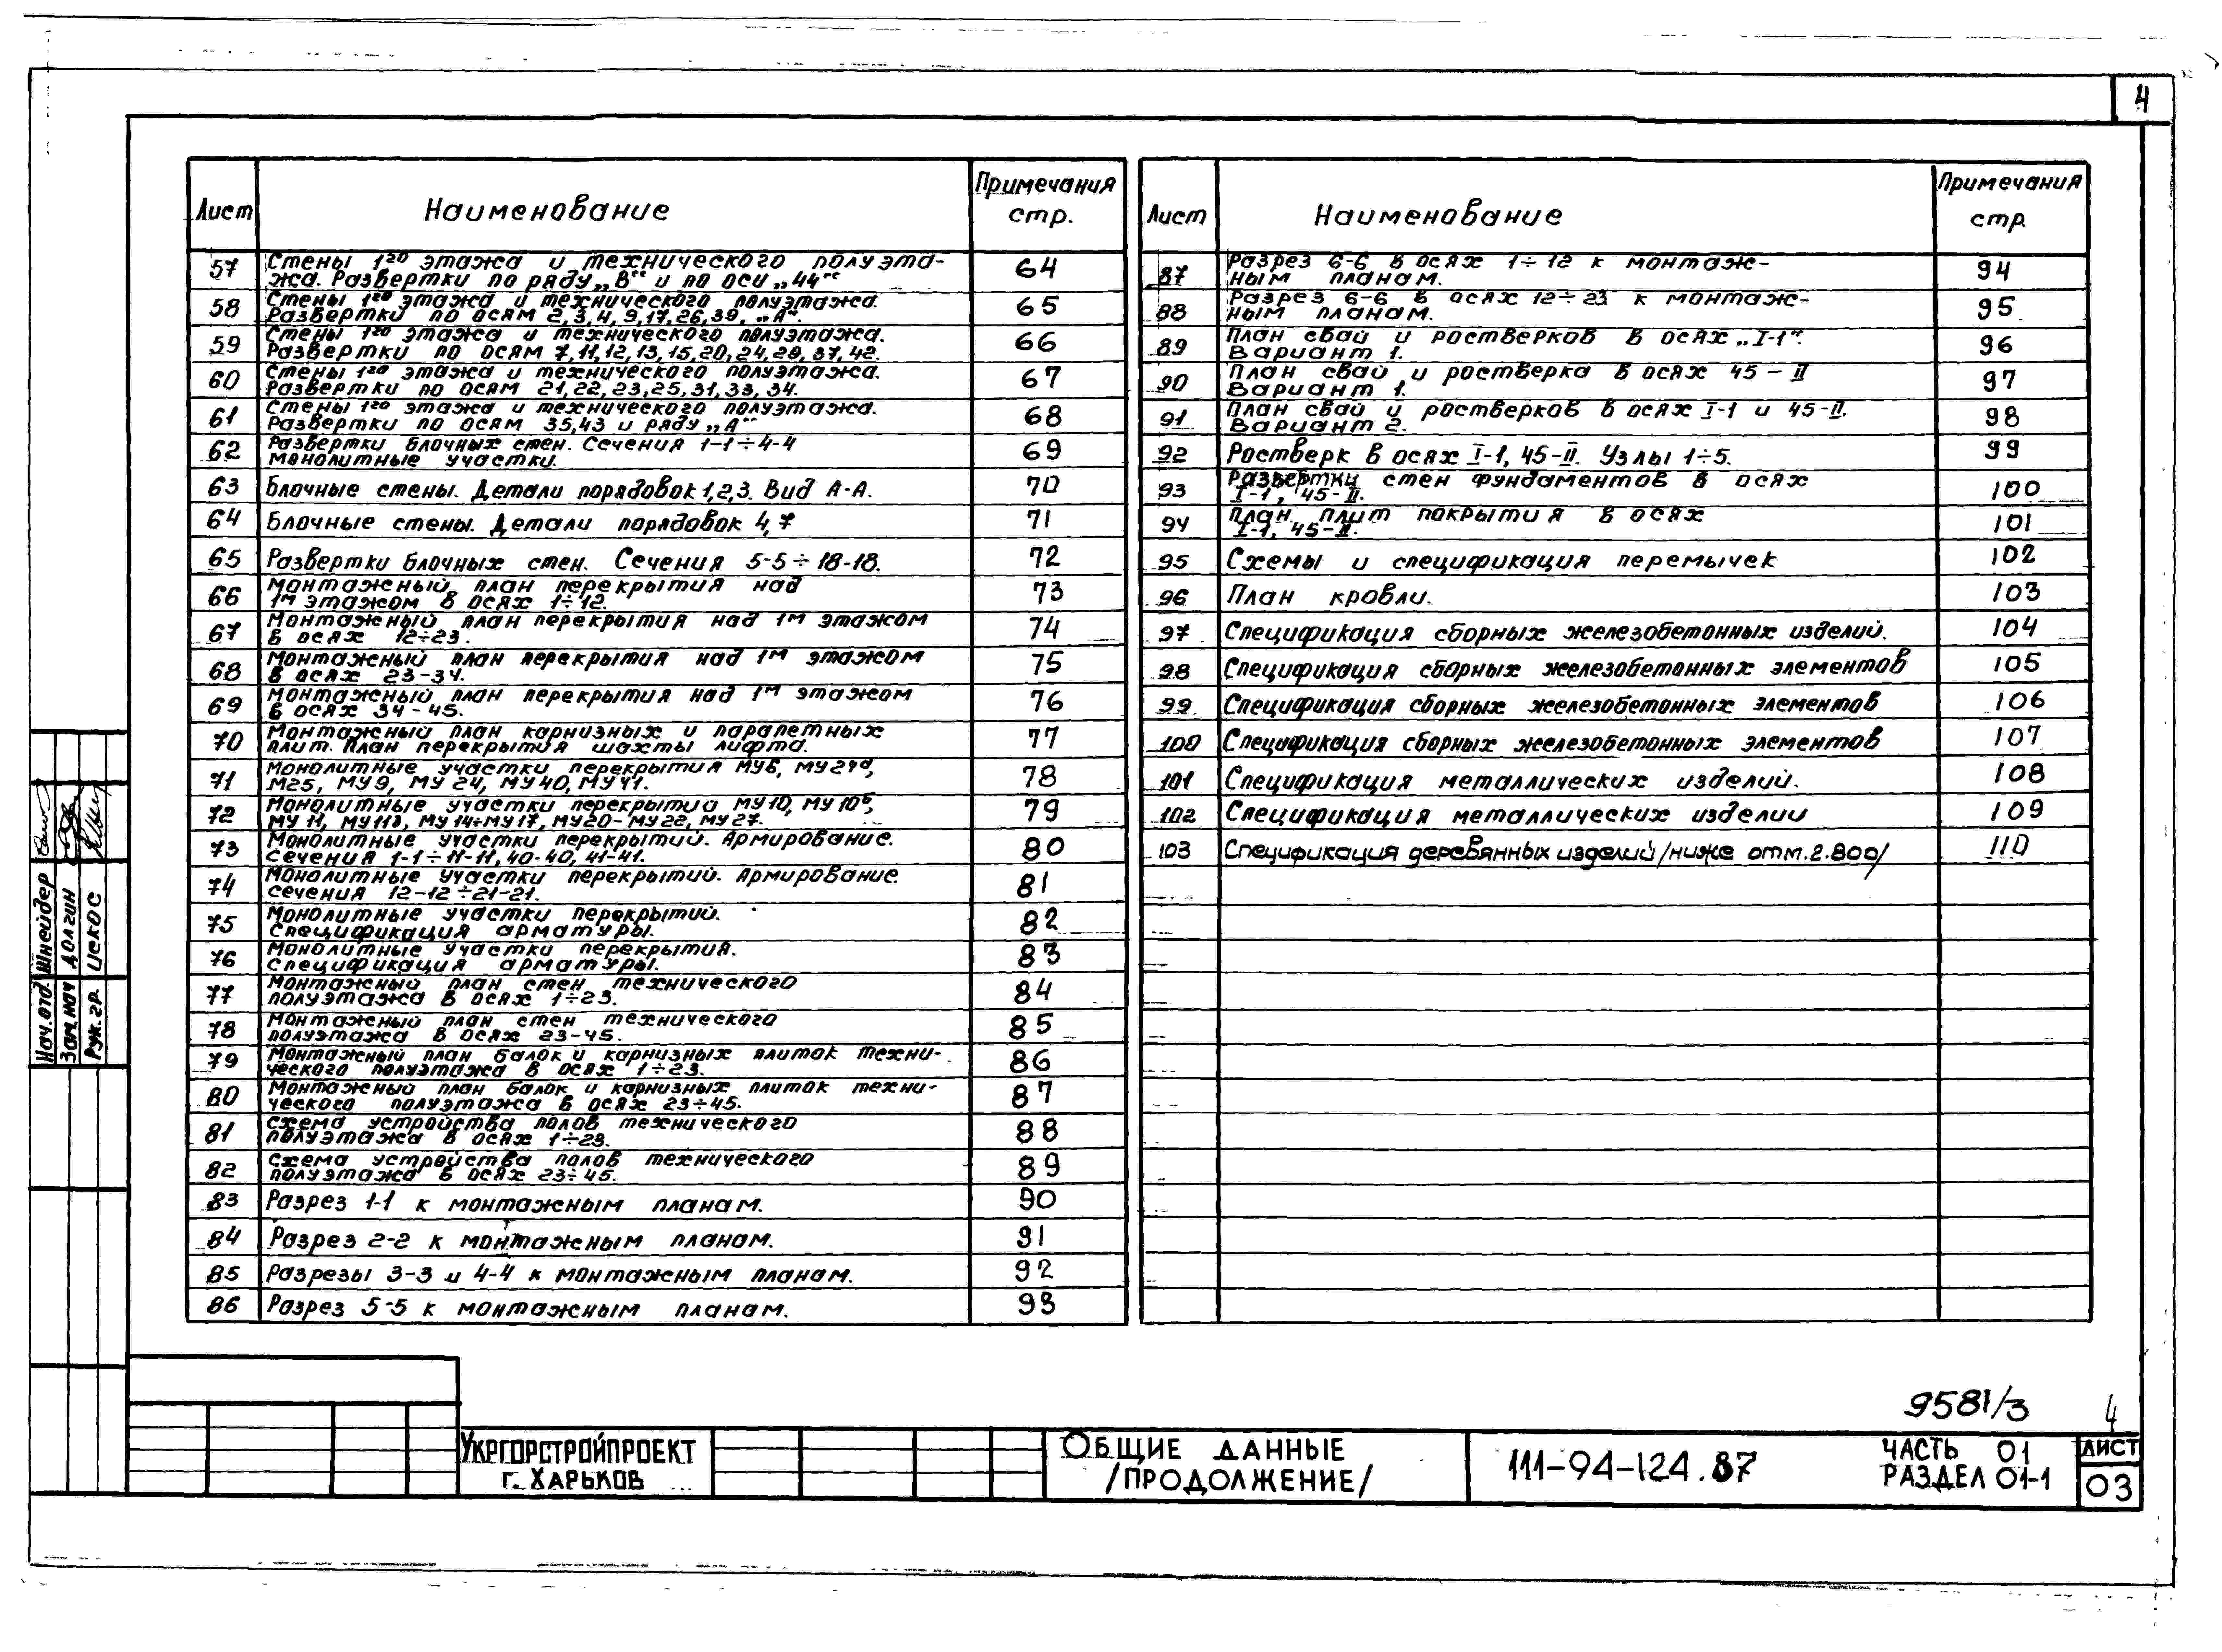 4
Лист Наименование Примечания стр.
57 Стены 1го этажа и технического полуэта-
жа. Развертки по ряду „В“ и по оси „44“ 64
58 Стены 1го этажа и технического полуэтажа.
Развертки по осям 2,3,4,9,17,26,39, „А“. 65
59 Стены 1го этажа и технического полуэтажа.
Развертки по осям 7,11,12,13,15,20,24,29,37,42. 66
60 Стены 1го этажа и технического полуэтажа.
Развертки по осям 21,22,23,25,31,33,34. 67
61 Стены 1го этажа и технического полуэтажа.
Развертки по осям 35,43 и ряду „А“ 68
62 Развертки блочных стен. Сечения 1-1÷4-4
монолитные участки. 69
63 Блочные стены. Детали порядовок 1,2,3. Вид А-А. 70
64 Блочные стены. Детали порядовок 4,7 71
65 Развертки блочных стен. Сечения 5-5÷18-18. 72
66 Монтажный план перекрытия над
1м этажом в осях 1÷12. 73
67 Монтажный план перекрытия над 1м этажом
в осях 12÷23. 74
68 Монтажный план перекрытия над 1м этажом
в осях 23-34. 75
69 Монтажный план перекрытия над 1м этажом
в осях 34-45. 76
70 Монтажный план карнизных и парапетных
плит. План перекрытия шахты лифта. 77
71 Монолитные участки перекрытия МУ6, МУ24а,
М25, МУ9, МУ 24, МУ40, МУ41. 78
72 Монолитные участки перекрытий МУ10, МУ10б,
МУ 11, МУ11а, МУ14÷МУ17, МУ20-МУ22, МУ27. 79
73 Монолитные участки перекрытий. Армирование.
Сечения 1-1÷11-11, 40-40, 41-41. 80
74 Монолитные участки перекрытий. Армирование.
сечения 12-12÷21-21. 81
75 Монолитные участки перекрытий.
Спецификация арматуры. 82
76 Монолитные участки перекрытия.
Спецификация арматуры. 83
77 Монтажный план стен технического
полуэтажа в осях 1÷23. 84
78 Монтажный план стен технического
полуэтажа в осях 23-45. 85
79 Монтажный план балок и карнизных плиток техни-
ческого полуэтажа в осях 1÷23. 86
80 Монтажный план балок и карнизных плиток техни-
ческого полуэтажа в осях 23÷45. 87
81 Схема устройства полов технического
полуэтажа в осях 1÷23. 88
82 Схема устройства полов технического
полуэтажа в осях 23÷45. 89
83 Разрез 1-1 к монтажным планам. 90
84 Разрез 2-2 к монтажным планам. 91
85 Разрезы 3-3 и 4-4 к монтажным планам. 92
86 Разрез 5-5 к монтажным планам. 93
Лист Наименование Примечания стр
87 Разрез 6-6 в осях 1÷12 к монтаж-
ным планам. 94
88 Разрез 6-6 в осях 12÷23 к монтаж-
ным планам. 95
89 План свай и ростверков в осях „I-1“.
Вариант 1. 96
90 План свай и ростверка в осях 45-II
Вариант 1. 97
91 План свай и ростверков в осях I-1 и 45-II.
Вариант 2. 98
92 Ростверк в осях I-1, 45-II. Узлы 1÷5. 99
93 Развертки стен фундаментов в осях
I-1, 45-II. 100
94 План плит покрытия в осях
I-1, 45-II. 101
95 Схемы и спецификация перемычек 102
96 План кровли. 103
97 Спецификация сборных железобетонных изделий. 104
98 Спецификация сборных железобетонных элементов 105
99 Спецификация сборных железобетонных элементов 106
100 Спецификация сборных железобетонных элементов 107
101 Спецификация металлических изделий. 108
102 Спецификация металлических изделий 109
103 Спецификация деревянных изделий /ниже отм.2.800/ 110
Нач.отд. Шнейдер
Зам.нач Долгин
Рук.гр. Цекос
9581/3 4
Укргорстройпроект
г. Харьков
Общие данные
/продолжение/
111-94-124.87
Часть 01
Раздел 01-1
Лист
03